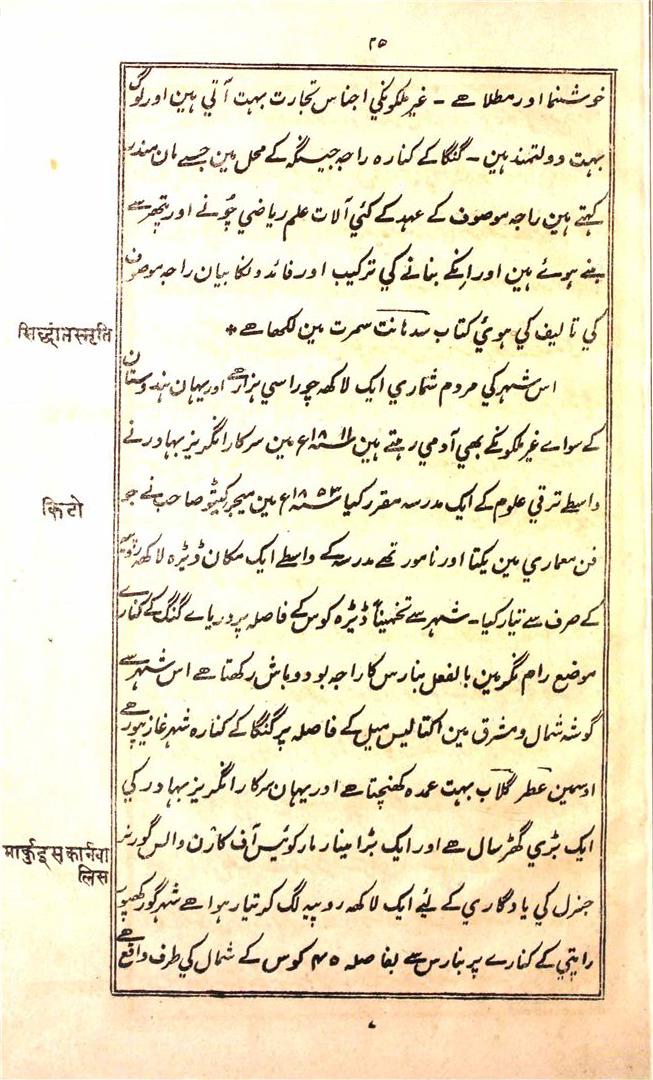 ۲۵
خوشنما اور مطلا ہے - غیر ملکونکي اجناس تجارت بہت آتي ہین اور لوگ
بہت دولتمند ہین - گنگا کے کنارہ راجہ جیسنگہ کے محل ہین جسے مان مندر
کہتے ہین راجہ موصوف کے عہد کے کئي آلات علم ریاضي چُونے اور پتھر سے
بنے ہوئے ہین اور اِنکے بنانے کي ترکیب اور فائدونکا بیان راجہ موصوف
کي تالیف کي ہوئي کتاب سدھانت سمرت مین لکھا ہے *
सिद्धांतस्मृति
اس شہر کي مردم شماري ایک لاکھہ چوراسي ہزار ہے اور یہان ہندوستان
کے سواے غیر ملکونکے بھي آدمي رہتے ہین سنہ ۱۸ ع مین سرکار انگریز بہادر نے
واسطے ترقي علوم کے ایک مدرسہ مقرر کیا سنہ ۱۸۵۳ ع مین میجر کیٹو صاحب نے جو
किटो
فن معماري مین یکتا اور نامور تھے مدرسہ کے واسطے ایک مکان ڈیڑہ لاکھہ روپیہ
کے صرف سے تیار کیا - شہر سے تخمیناً ڈیڑہ کوس کے فاصلہ پر دریاے گنگ کے کنارے
موضع رام نگر مین بالفعل بنارس کا راجہ بود و باش رکھتا ہے اس شہر سے
گوشہ شمال و مشرق مین اکتالیس میل کے فاصلہ پر گنگا کے کنارہ شہر غازیپور ہے
اوسمین عطر گلاب بہت عمدہ کھنچتا ہے اور یہان سرکار انگریز بہادر کي
ایک بڑي گھڑسال ہے اور ایک بڑا مینار مارکوئیس آف کارن والس گورنر
मार्कुइस् कार्नवा
लिस
جنرل کي یادگاري کے لیئے ایک لاکھہ روپیہ لگ کر تیار ہوا ہے شہر گورکھپور
راپتي کے کنارے پر بنارس سے بفاصلہ ۴۵ کوس کے شمال کي طرف واقع ہے